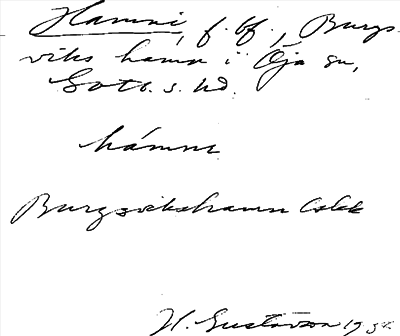 Hamni, f. bf., Burgs-
viks hamn i Öja sn,
Gotl. s. hd.
hámnı
Burgsvikshamn
H. Gustavson 19